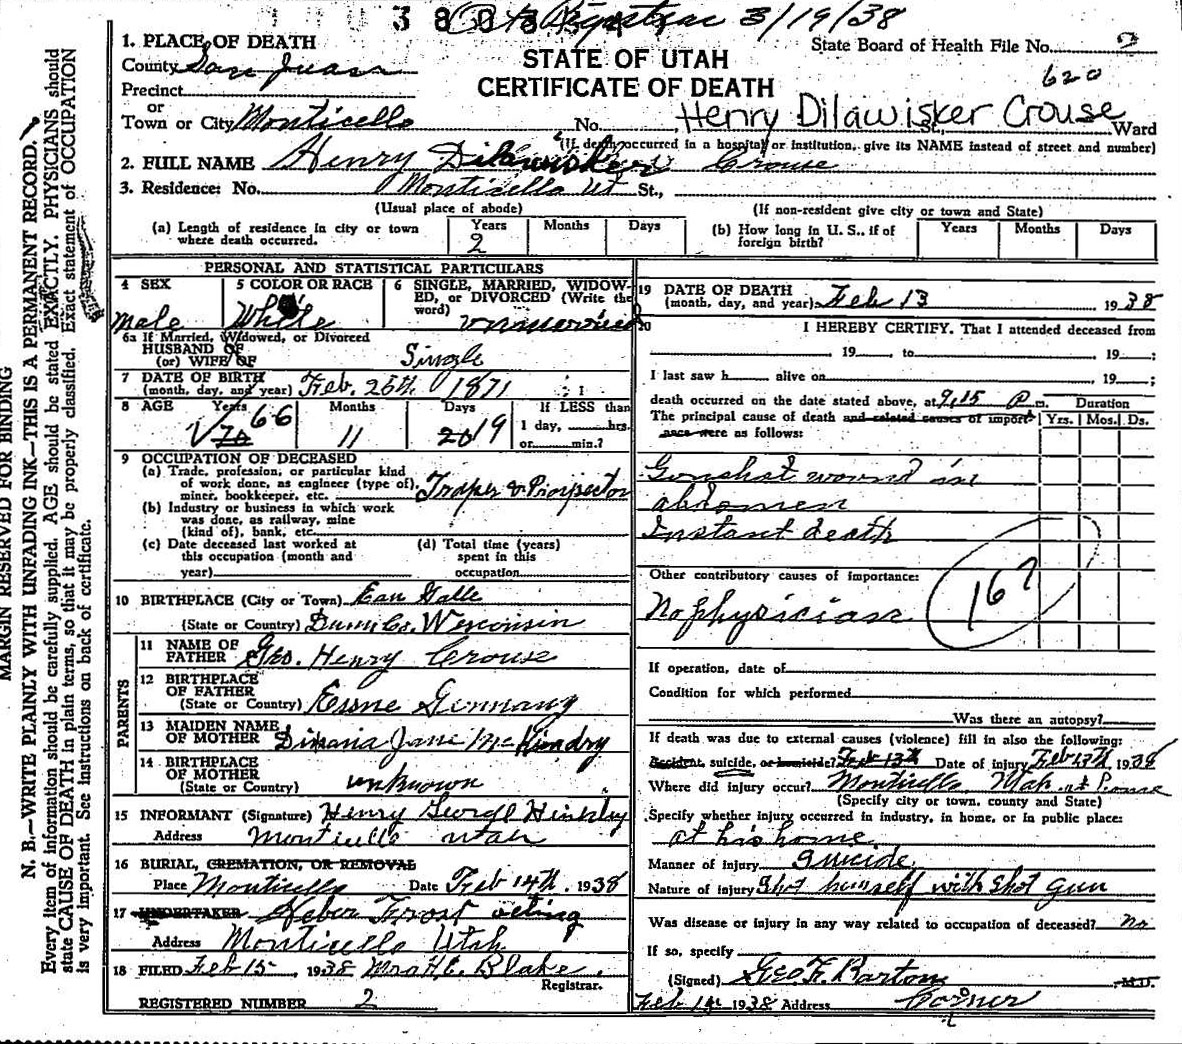 3 8 0
to Registrar 3/19/38
1. PLACE OF DEATH
County San Juan
Precinct
or
Town or City Monticello No. St., Ward
STATE OF UTAH
CERTIFICATE OF DEATH
State Board of Health File No. 2
620
Henry Dilawisker Crouse
(If death occurred in a hospital or institution, give its NAME instead of street and number)
2. FULL NAME Henry Crouse
3. Residence: No. Monticello Ut St.,
(Usual place of abode) (If non-resident give city or town and State)
(a) Length of residence in city or town where death occurred. Years 2 Months Days
(b) How long in U. S., if of foreign birth? Years Months Days
PERSONAL AND STATISTICAL PARTICULARS
4 SEX
Male
5 COLOR OR RACE
White
6 SINGLE, MARRIED, WIDOWED, or DIVORCED (Write the word)
unmarried
6a If Married, Widowed, or Divorced
HUSBAND OF
(or) WIFE OF Single
7 DATE OF BIRTH
(month, day, and year) Feb. 25th 1871
8 AGE Years 70 66 Months 11 Days 20 19
If LESS than
1 day, hrs.
or min.?
9 OCCUPATION OF DECEASED
(a) Trade, profession, or particular kind
of work done, as engineer (type of),
miner, bookkeeper, etc. Traper & Prospector
(b) Industry or business in which work
was done, as railway, mine
(kind of), bank, etc.
(c) Date deceased last worked at
this occupation (month and
year)
(d) Total time (years)
spent in this
occupation
10 BIRTHPLACE (City or Town) Eau Galle
(State or Country) Dunn Co. Wisconsin
PARENTS
11 NAME OF
FATHER Geo. Henry Crouse
12 BIRTHPLACE
OF FATHER
(State or Country) Germany
13 MAIDEN NAME
OF MOTHER Jane
14 BIRTHPLACE
OF MOTHER
(State or Country) unknown
15 INFORMANT (Signature) Henry George Hinkley
Address Monticello Utah
16 BURIAL, CREMATION, OR REMOVAL
Place Monticello Date Feb 14th, 1938
17 UNDERTAKER Heber Frost acting
Address Monticello Utah
18 FILED Feb 15, 1938 Mrs H.C. Blake.
Registrar.
REGISTERED NUMBER 2
19 DATE OF DEATH
(month, day, and year) Feb 13 1938
20 I HEREBY CERTIFY. That I attended deceased from
, 19 , to , 19 ;
I last saw h alive on , 19 ;
death occurred on the date stated above, at 9,15 P m. Duration
The principal cause of death and related causes of importance were as follows: Yrs. Mos. Ds.
Gunshot wound in
abdomen
Instant death
Other contributory causes of importance:
No physician
167
If operation, date of
Condition for which performed
Was there an autopsy?
If death was due to external causes (violence) fill in also the following:
Accident, suicide, or homicide? Feb 13th Date of injury Feb 13th 1938
Where did injury occur? Monticello, at
(Specify city or town, county and State)
Specify whether injury occurred in industry, in home, or in public place:
at his home.
Manner of injury suicide
Nature of injury Shot himself with shot gun
Was disease or injury in any way related to occupation of deceased? no
If so, specify
(Signed) Geo F. Barton M.D.
Feb 14 1938 Address Corner
MARGIN RESERVED FOR BINDING
N. B.—WRITE PLAINLY WITH UNFADING INK—THIS IS A PERMANENT RECORD.
Every item of information should be carefully supplied. AGE should be stated EXACTLY. PHYSICIANS should
state CAUSE OF DEATH in plain terms, so that it may be properly classified. Exact statement of OCCUPATION
is very important. See instructions on back of certificate.